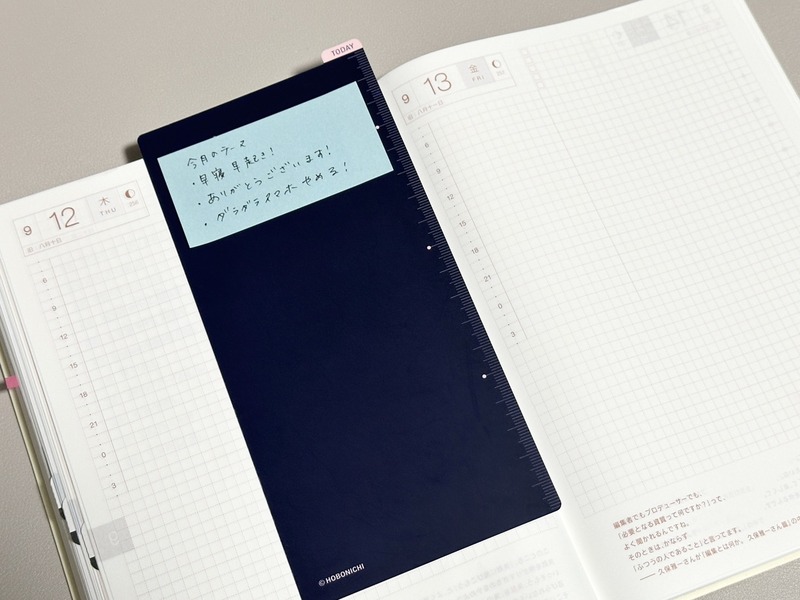 TODAY
今月のテーマ
・早寝早起き！
・ありがとうございます！
・ダラダラスマホやめる！
© HOBONICHI
9 12 木 THU
旧 八月十日
6
9
12
15
18
21
0
3
9 13 金 FRI
旧 八月十一日
6
9
12
15
18
21
0
3
編集者でもプロデューサーでも、
「必要となる資質って何ですか？」って、
よく聞かれるんですね。
そのときは、かならず
「ふつうの人であること」と言ってます。
── 久保雅一さんが『編集とは何か。久保雅一